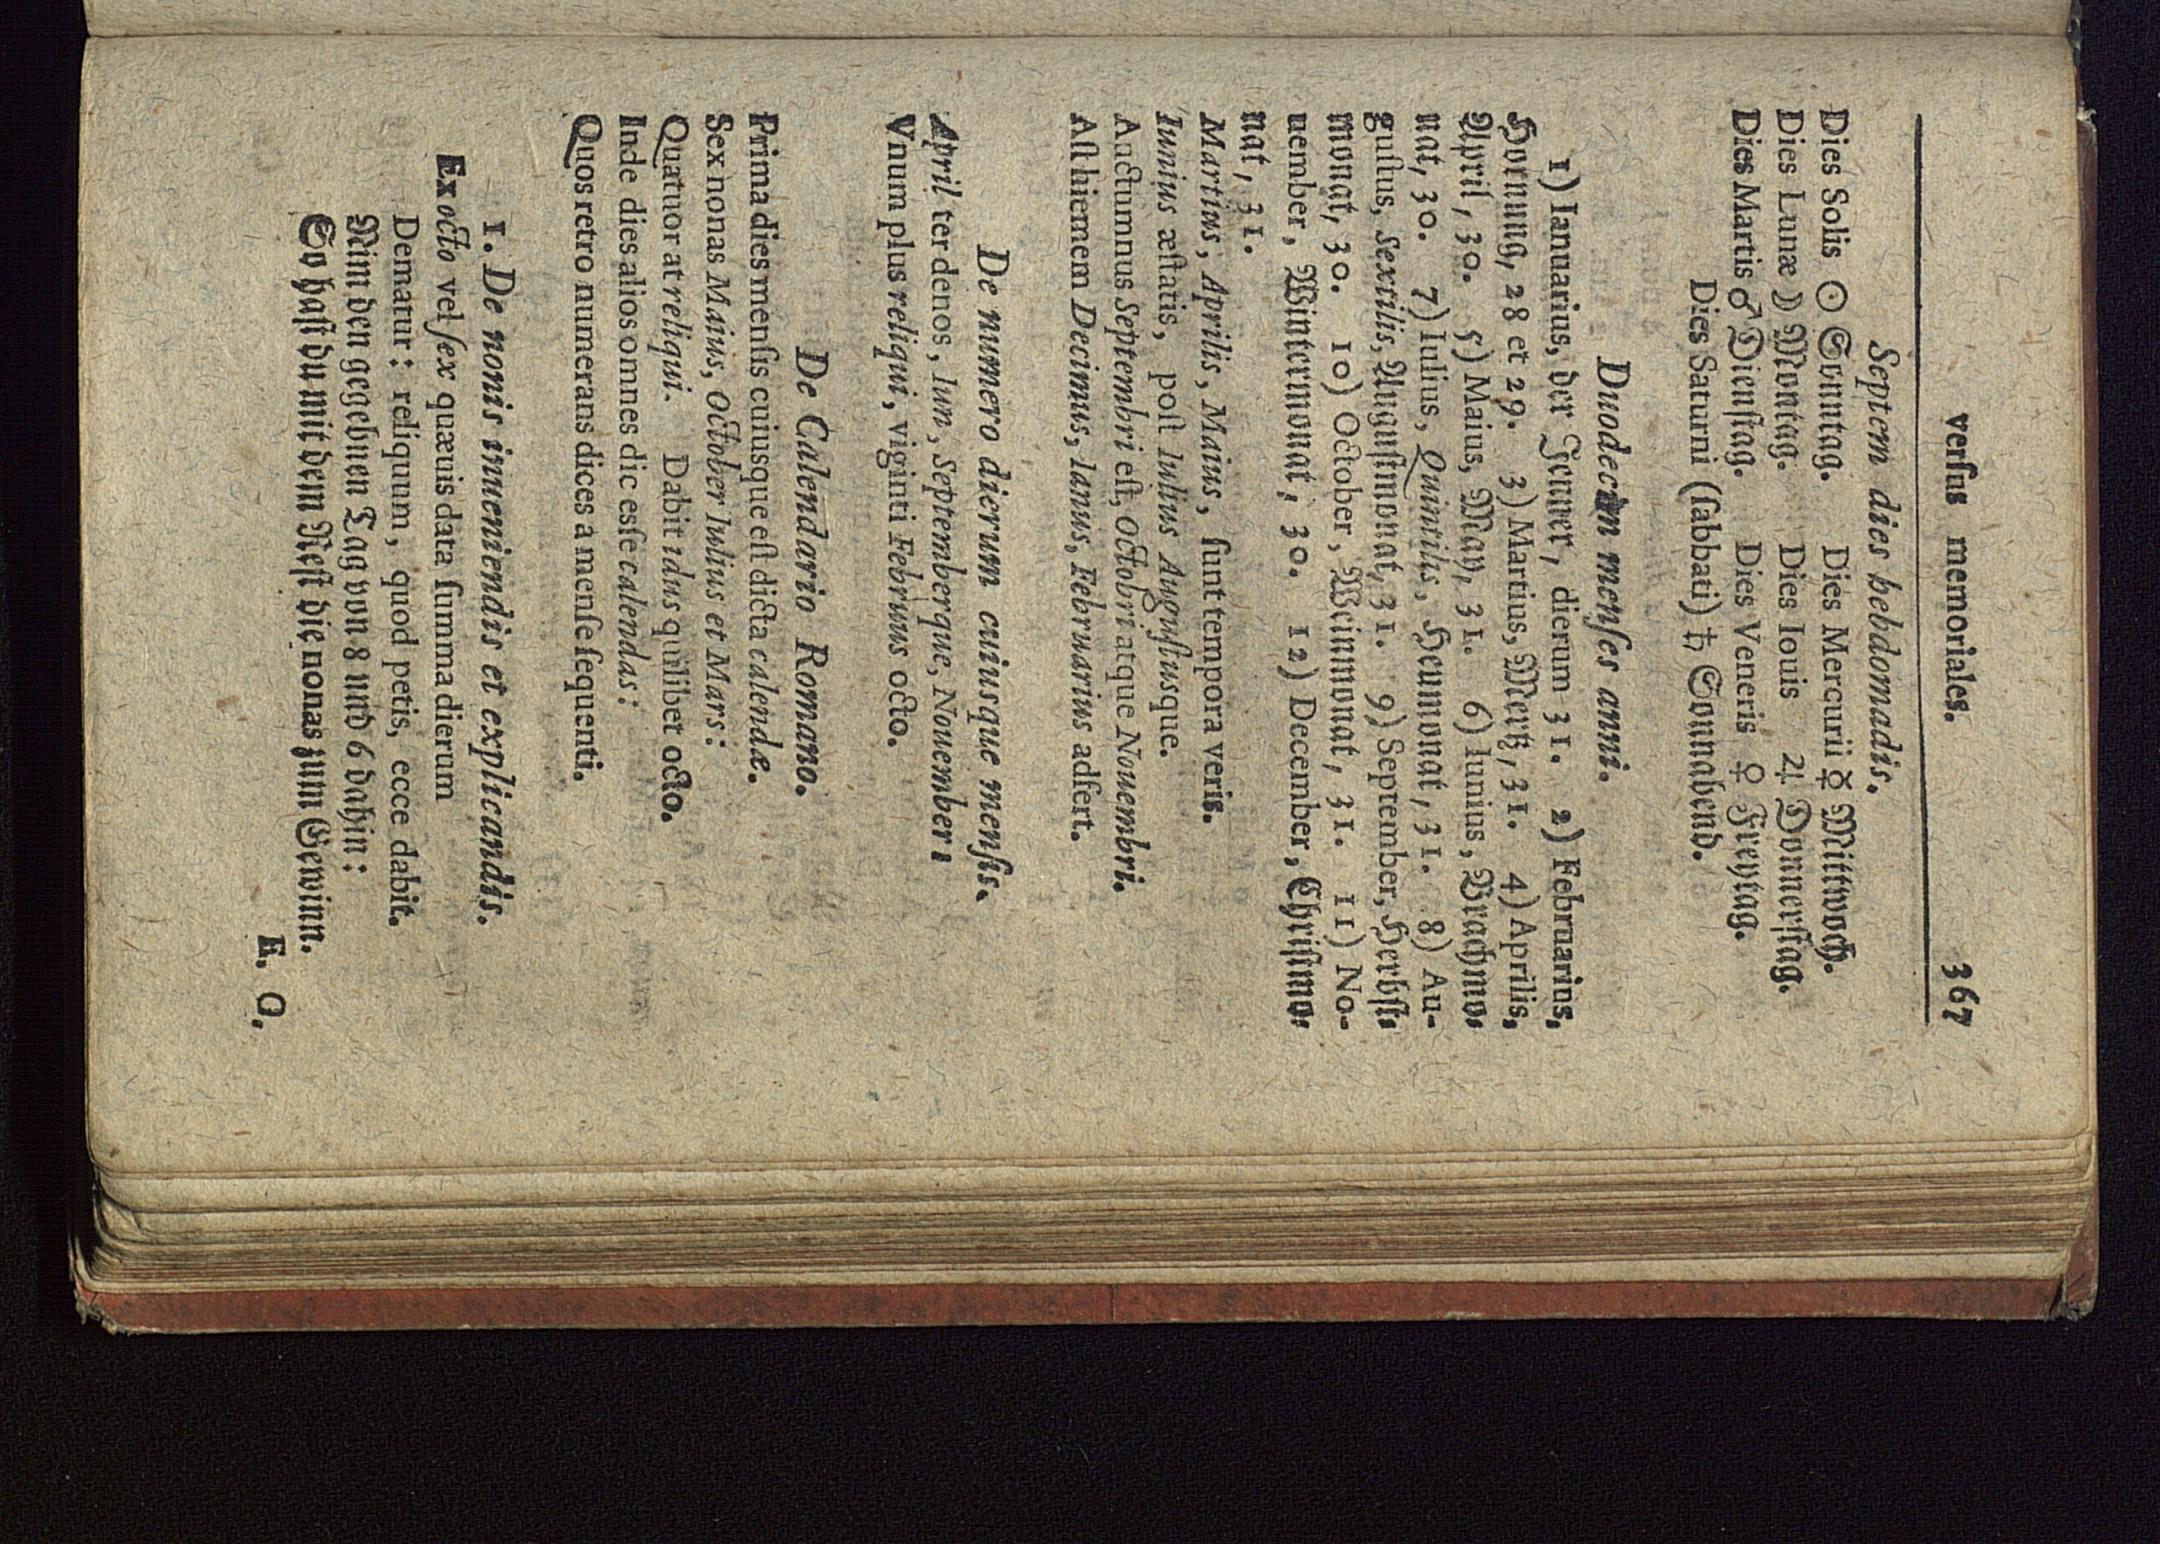 verſus memoriales. 367
Septem dies hebdomadis.
Dies Solis ☉ Sonntag. Dies Mercurii ☿ Mittwoch.
Dies Lunæ ☽ Montag. Dies Iouis ♃ Donnerſtag.
Dies Martis ♂ Dienſtag. Dies Veneris ♀ Freytag.
Dies Saturni (ſabbati) ♄ Sonnabend.
Duodecim menſes anni.
1) Ianuarius, der Jenner, dierum 31. 2) Februarius,
Hornung, 28 et 29. 3) Martius, Mertz, 31. 4) Aprilis,
April, 30. 5) Maius, May, 31. 6) Iunius, Brachmo⸗
nat, 30. 7) Iulius, Quintilis, Heumonat, 31. 8) Au-
guſtus, Sextilis, Auguſtmonat, 31. 9) September, Herbſt⸗
monat, 30. 10) October, Weinmonat, 31. 11) No-
uember, Wintermonat, 30. 12) December, Chriſtmo⸗
nat, 31.
Martius, Aprilis, Maius, ſunt tempora veris.
Iunius æſtatis, poſt Iulius Auguſtusque.
Auctumnus Septembri eſt, Octobri atque Nouembri.
Aſt hiemem Decimus, Ianus, Februarius adfert.
De numero dierum cuiusque menſis.
April ter denos, Iun, Septemberque, Nouember:
Vnum plus reliqui, viginti Februus octo.
De Calendario Romano.
Prima dies menſis cuiusque eſt dicta calendæ.
Sex nonas Maius, October Iulius et Mars:
Quatuor at reliqui. Dabit idus quilibet octo.
Inde dies alios omnes dic esſe calendas:
Quos retro numerans dices a menſe ſequenti.
1. De nonis inueniendis et explicandis.
Ex octo vel ſex quæuis data ſumma dierum
Dematur: reliquum, quod petis, ecce dabit.
Nim den gegebnen Tag von 8 und 6 dahin:
So haſt du mit dem Reſt die nonas zum Gewinn.
E. O.